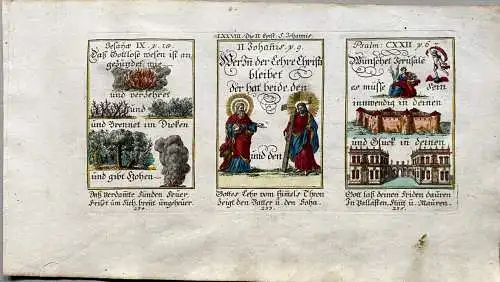 LXXVIII. Die II Epist. S. Johannis.
Jesajæ IX. v. 18.
Daß Gottlose wesen ist an-
gezündet wie
und verzehret
und Brennet im Dicken
und gibt Hohen
Daß verdamte Sünden Feuer
Frißet üm Sich, brent ungeheuer.
254.
II Johañis v. 9.
Wer In der Lehre Christi
bleibet
der hat beide, den
und den
Gottes Lehr vom Himels Thron
Zeigt den Vatter ü. den Sohn.
255.
Psalm: CXXII v. 6
Wünschet Jerusale
es müsse Fein
inwendig in deinen
und Glück in deinen
Gott laß deinen Friden dauren
In Pallästen, Stätt ü. Mauren.
256.